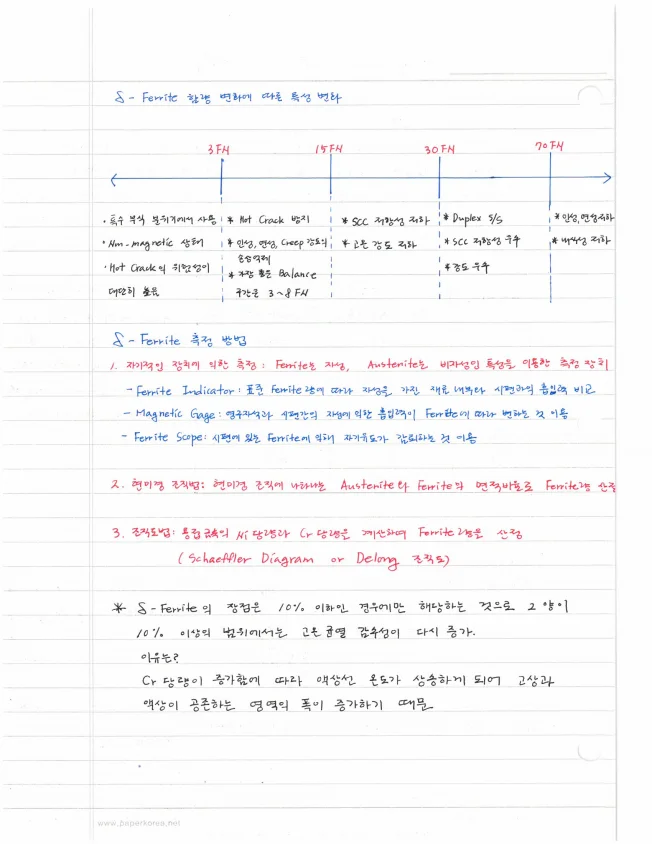 δ - Ferrite 함량 변화에 따른 특성 변화
3FN 15FN 30FN 70FN
· 특수 부식 분위기에서 사용
· Non-magnetic 상태
· Hot Crack의 위험성이
대단히 높음
* Hot Crack 방지
* 인성, 연성, Creep 강도의
* 가장 좋은 Balance
구간은 3~8FN
* SCC 저항성 저하
* 고온 강도 저하
* Duplex S/S
* SCC 저항성 우수
* 강도 우수
* 인성, 연성저하
* 내식성 저하
δ - Ferrite 측정 방법
1. 자기적인 장치에 의한 측정 : Ferrite는 자성, Austenite는 비자성인 특성을 이용한 측정 장치
- Ferrite Indicator : 표준 Ferrite량에 따라 자성을 가진 재료 내부와 시편과의 흡인력 비교
- Magnetic Gage : 영구자석과 시편간의 자성에 의한 흡인력이 Ferrite에 따라 변하는 것 이용
- Ferrite Scope : 시편에 있는 Ferrite에 의해 자기유도가 감퇴하는 것 이용
2. 현미경 조직법 : 현미경 조직에 나타나는 Austenite와 Ferrite의 면적비율로 Ferrite량 산정
3. 조직도법 : 용접금속의 Ni 당량과 Cr 당량을 계산하여 Ferrite량을 산정
( Schaeffler Diagram or Delong 조직도)
* δ - Ferrite의 장점은 10% 이하인 경우에만 해당하는 것으로 그 양이
10% 이상의 범위에서는 고온 균열 감수성이 다시 증가.
이유는?
Cr 당량이 증가함에 따라 액상선 온도가 상승하게 되어 고상과
액상이 공존하는 영역의 폭이 증가하기 때문
www.paperkorea.net